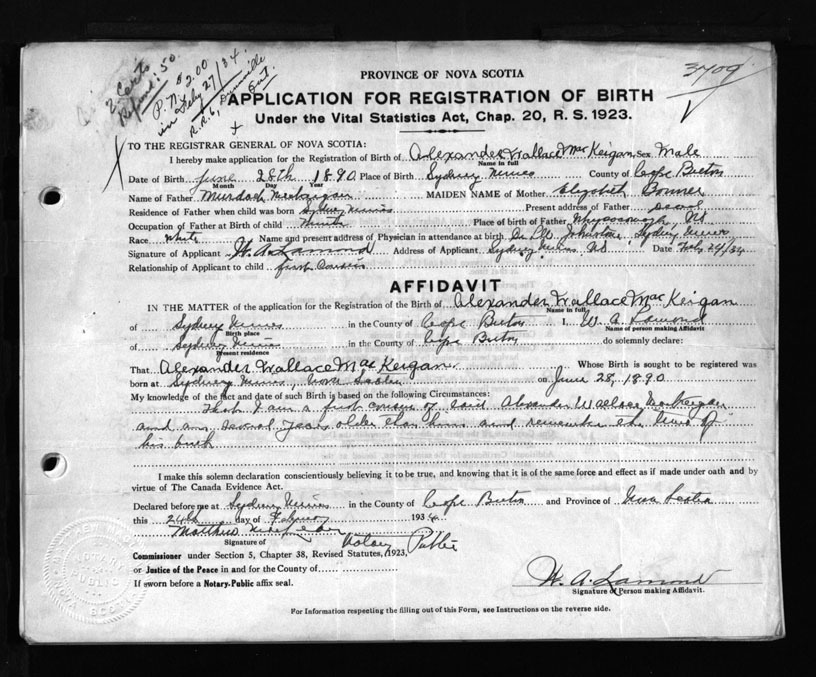 2 Certs
Refund: 50.
P.N. $2.00
in Feby 27/34
R.R.6, Dunnville
Ont.
3709
PROVINCE OF NOVA SCOTIA
APPLICATION FOR REGISTRATION OF BIRTH
Under the Vital Statistics Act, Chap. 20, R. S. 1923.
TO THE REGISTRAR GENERAL OF NOVA SCOTIA:
I hereby make application for the Registration of Birth of Alexander Wallace MacKeigan Sex Male
Name in full
Date of Birth June 28th 1890 Place of Birth Sydney Mines County of Cape Breton
Month Day Year
Name of Father Murdoch MacKeigan MAIDEN NAME of Mother Elizabeth
Residence of Father when child was born Sydney Mines Present address of Father
Occupation of Father at Birth of child Place of birth of Father Whycocomagh, NS
Race White Name and present address of Physician in attendance at birth Dr. Johnstone, Sydney Mines
Signature of Applicant W. A. Lamond Address of Applicant Sydney Mines NS Date Feb 24/34
Relationship of Applicant to child first cousin
AFFIDAVIT
IN THE MATTER of the application for the Registration of the Birth of Alexander Wallace MacKeigan
Name in full
of Sydney Mines in the County of Cape Breton I, W. A. Lamond
Birth place Name of person making Affidavit
of Sydney Mines in the County of Cape Breton do solemnly declare:
Present residence
That Alexander Wallace MacKeigan Whose Birth is sought to be registered was
born at Sydney Mines, Nova Scotia on June 28, 1890
My knowledge of the fact and date of such Birth is based on the following Circumstances:
That I am a first cousin of said Alexander Wallace MacKeigan
and am several years older than him and remember the time of
his birth
I make this solemn declaration conscientiously believing it to be true, and knowing that it is of the same force and effect as if made under oath and by
virtue of The Canada Evidence Act.
Declared before me at Sydney Mines in the County of Cape Breton and Province of Nova Scotia
this 24th day of February 1934
Matthew
Signature of Notary Public
Commissioner under Section 5, Chapter 38, Revised Statutes, 1923,
or Justice of the Peace in and for the County of
If sworn before a Notary-Public affix seal.
W. A. Lamond
Signature of Person making Affidavit.
For Information respecting the filling out of this Form, see Instructions on the reverse side.